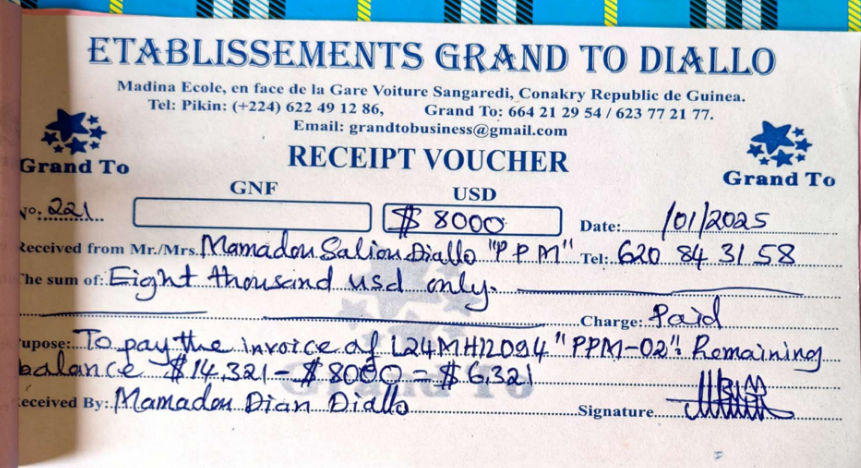 ETABLISSEMENTS GRAND TO DIALLO
Madina Ecole, en face de la Gare Voiture Sangaredi, Conakry Republic de Guinea.
Tel: Pikin: (+224) 622 49 12 86, Grand To: 664 21 29 54 / 623 77 21 77.
Email: grandtobusiness@gmail.com
Grand To RECEIPT VOUCHER Grand To
GNF USD
No: 221 $ 8000 Date: /01/2025
Received from Mr./Mrs. Mamadou Saliou Diallo "PPM" Tel: 620 84 31 58
The sum of: Eight thousand usd only.
Charge: Paid
upose: To pay the invoice of L24MH12094 "PPM-02". Remaining
balance $14,321 - $8000 = $6,321
eceived By: Mamadou Dian Diallo Signature